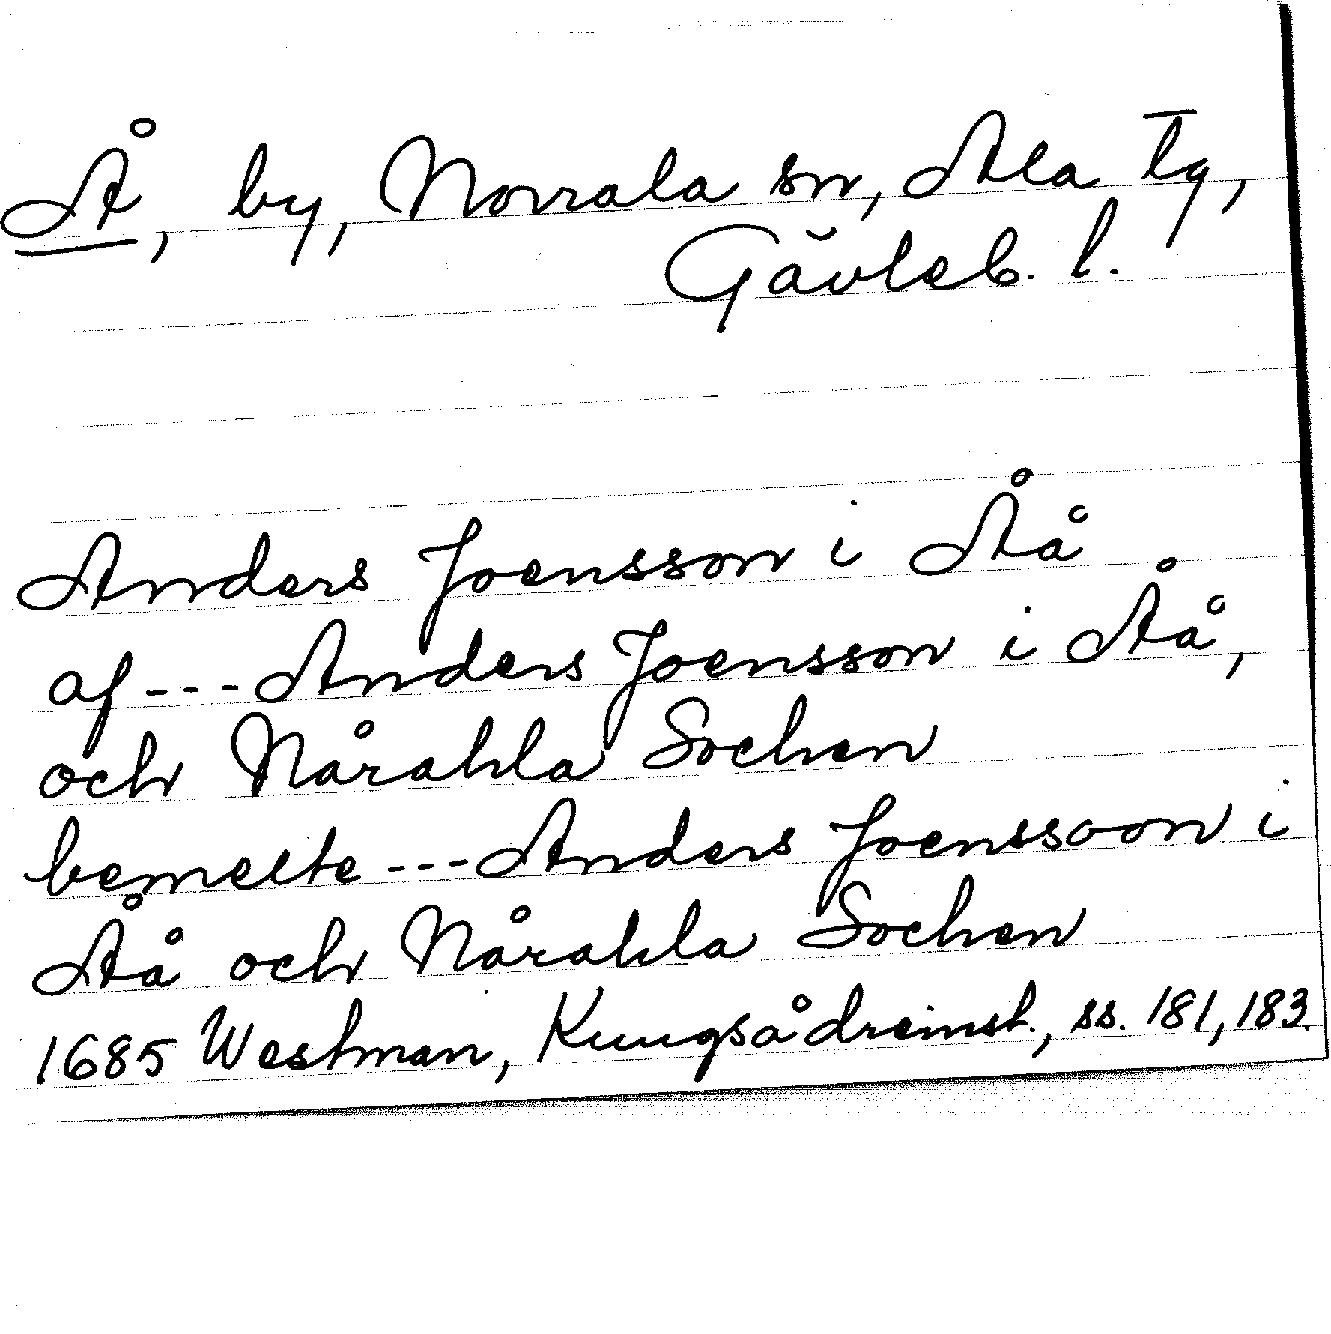 Å, by, Norrala sn, Ala tg,
Gävleb. l.
Anders Joensson i Åå
af --- Anders Joensson i Åå,
och Nårahla Sochen
bemelte --- Anders Joenssoon i
Åå och Nårahla Sochen
1685 Westman, Kungsådreinst., ss. 181, 183